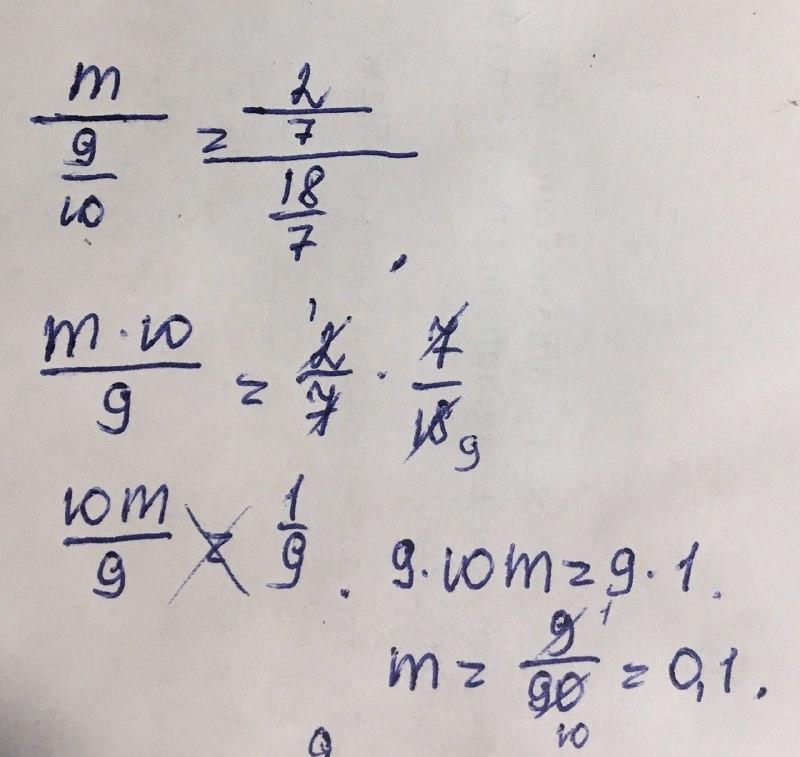 m/(9/10) = (2/7)/(18/7).
(m · 10)/9 = 2/7 · 7/18 1 9
10m/9 = 1/9. 9 · 10m = 9 · 1.
m = 9/90 = 0,1. 1 10
9